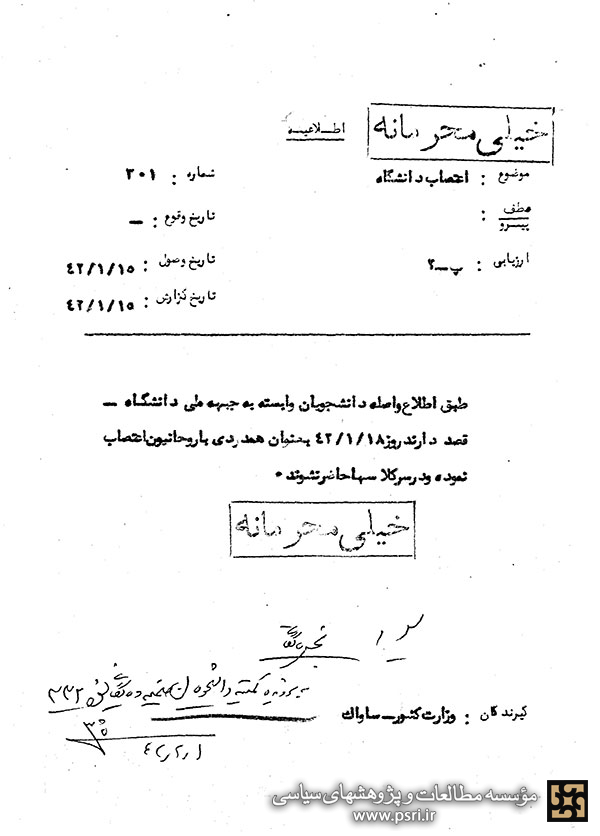 خیلی محرمانه
اطلاعیه
موضوع : اعتصاب دانشگاه
شماره : ۳۰۱
عطف
پیرو :
تاریخ وقوع : ــ
ارزیابی : پ ــ ۲
تاریخ وصول : ۴۲/۱/۱۵
تاریخ گزارش : ۴۲/۱/۱۵
طبق اطلاع واصله دانشجویان وابسته به جبهه ملی دانشگاه ــ
قصد دارند روز ۴۲/۱/۱۸ بعنوان همدردی با روحانیون اعتصاب
نموده و در سر کلاسها حاضر نشوند ۰
خیلی محرمانه
گیرندگان : وزارت کشور ــ ساواک
مؤسسه مطالعات و پژوهشهای سیاسی
www.psri.ir